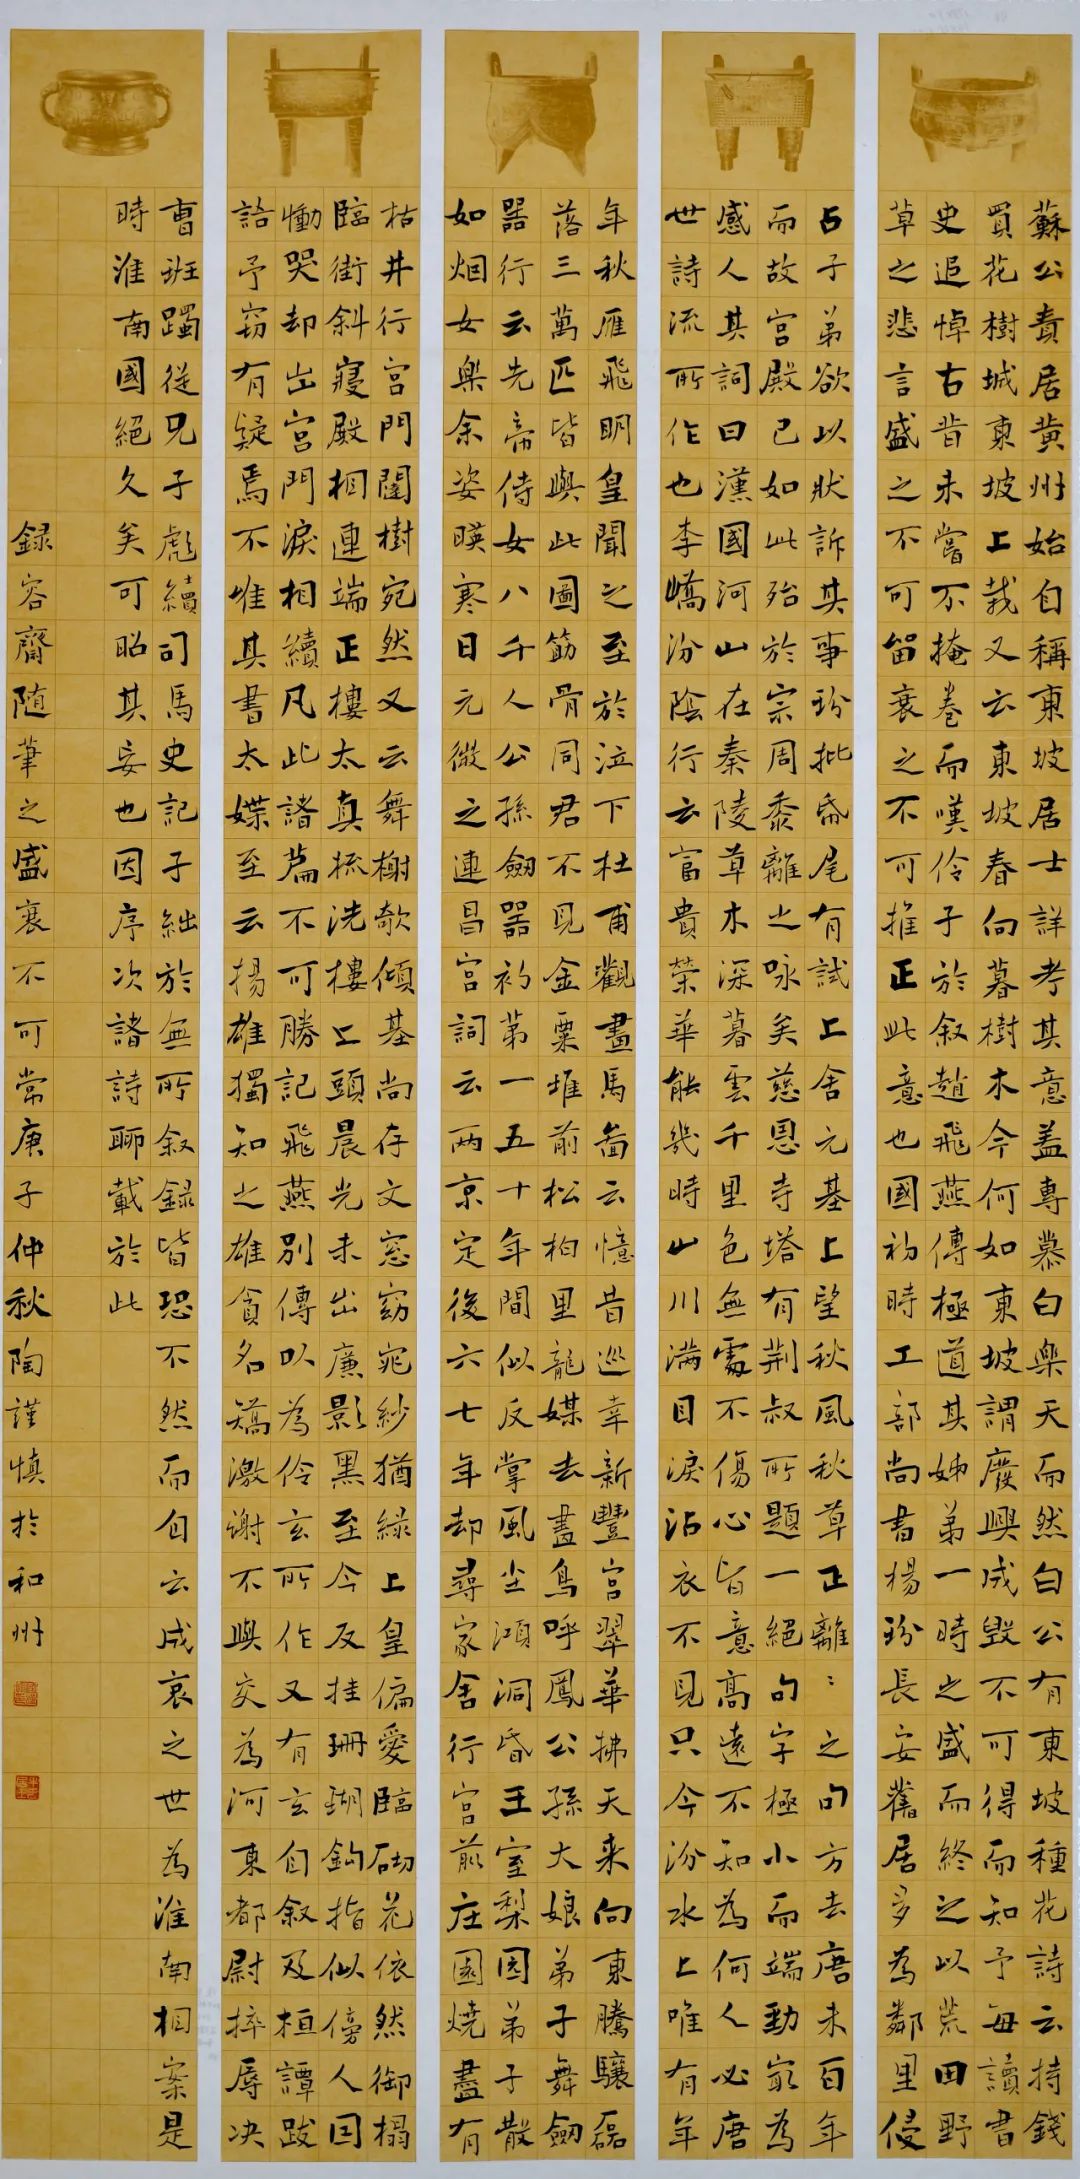 蘇公責居黄州始自稱東坡居士詳考其意盖專慕白樂天而然白公有東坡種花詩云持錢
買花樹城東坡上栽又云東坡春向暮樹木今何如東坡謂廢興成毀不可得而知予每讀書
史追悼古昔未嘗不掩卷而嘆伶子於叙趙飛燕傳極道其姊弟一時之盛而終之以荒田野
草之悲言盛之不可留衰之不可推正此意也國初時工部尚書楊玢長安舊居多為鄰里侵
占子弟欲以狀訴其事玢批帋尾有試上舍元基上望秋風秋草正離〻之句方去唐未百年
而故宫殿已如此殆於宗周黍離之咏矣慈恩寺塔有荆叔所題一絕句字極小而端勁最為
感人其詞曰漢國河山在秦陵草木深暮雲千里色無處不傷心旨意高遠不知為何人必唐
世詩流所作也李嶠汾陰行云富貴榮華能幾時山川滿目淚沾衣不見只今汾水上唯有年
年秋雁飛明皇聞之至於泣下杜甫觀畫馬圖云憶昔巡幸新豐宫翠華拂天来向東騰驤磊
落三萬匹皆與此圖筋骨同君不見金粟堆前松柏里龍媒去盡鳥呼鳳公孫大娘弟子舞劒
器行云先帝侍女八千人公孫劒器初第一五十年間似反掌風尘澒洞昏王室梨園弟子散
如烟女樂余姿暎寒日元微之連昌宫詞云两京定後六七年却尋家舍行宫前庄園燒盡有
枯井行宫門闥樹宛然又云舞榭欹傾基尚存文窓窈窕紗猶緑上皇偏愛臨砌花依然御榻
臨街斜寢殿相連端正樓太真梳洗樓上頭晨光未出廉影黑至今反挂珊瑚鈎指似傍人因
慟哭却出宫門淚相續凡此諸篇不可勝記飛燕別傳以為伶玄所作又有玄自叙及桓譚跋
語予窃有疑焉不唯其書太媟至云揚雄獨知之雄貪名矯激謝不與交為河東都尉捽辱决
曹班躅從兄子彪續司馬史記子絀於無所叙録皆恐不然而自云成哀之世為淮南相案是
時淮南國絕久矣可昭其妄也因序次諸詩聊載於此
録容齋随筆之盛衰不可常庚子仲秋陶謹慎於和州